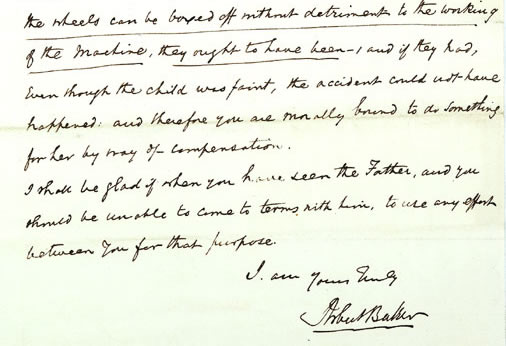 the wheels can be boxed off without detriment to the working
of the Machine, they ought to have been -, and if they had,
Even though the child was faint, the accident could not have
happened: and therefore you are morally bound to do something
for her by way of compensation.
I shall be glad if when you have seen the Father, and you
should be unable to come to terms with him, to use any effort
between you for that purpose.
I am yours truly
Robert Baker